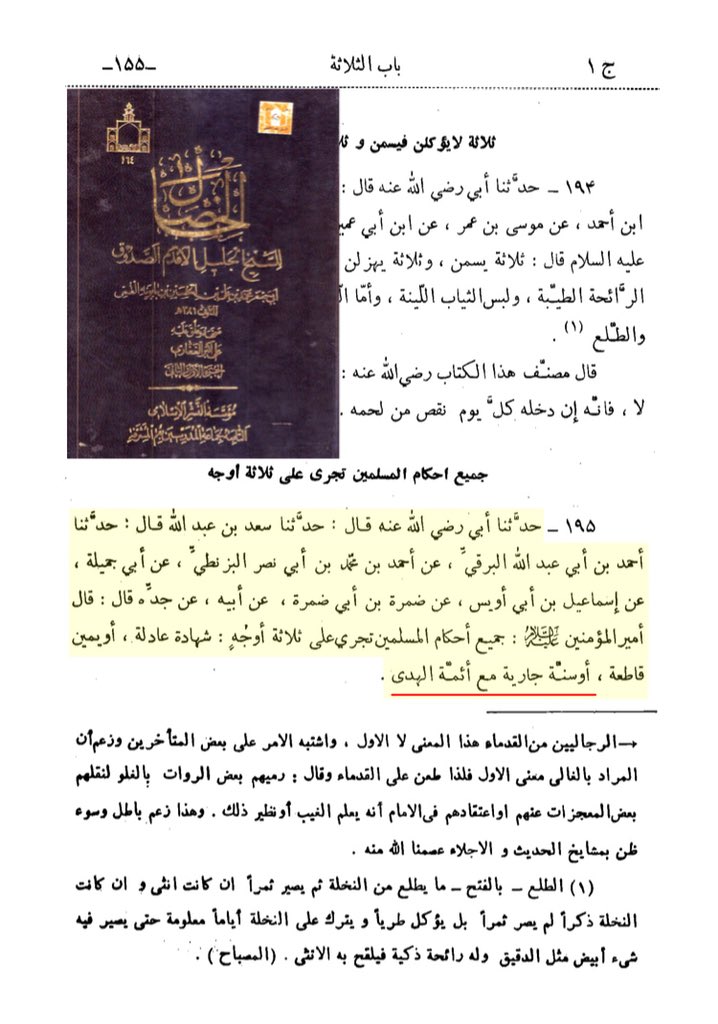 ج ١ باب الثلاثة -١٥٥-
ثلاثة لايؤكلن فيسمن و ثلا
١٩٤ ـ حدَّثنا أبي رضي الله عنه قال :
ابن أحمد ، عن موسى بن عمر ، عن ابن أبي عمير
عليه السلام قال : ثلاثة يسمن ، وثلاثة يهزلن
الرَّائحة الطيّبة ، ولبس الثياب اللّينة ، وأمّا الّ
والطّلع (١) .
قال مصنّف هذا الكتاب رضي الله عنه :
لا ، فانّه إن دخله كلَّ يوم نقص من لحمه .
١٦٤
الخصال
للشيخ الجليل الأقدم الصدوق
أبي جعفر محمد بن علي بن الحسين بن بابويه القمي
المتوفى ٣٨١ هـ
صححه وعلق عليه
علي أكبر الغفاري
مؤسسة النشر الإسلامي
التابعة لجماعة المدرسين بقم المشرفة
جميع احكام المسلمين تجرى على ثلاثة أوجه
١٩٥ ـ حدَّثنا أبي رضي الله عنه قال : حدَّثنا سعد بن عبد الله قال : حدَّثنا
أحمد بن أبي عبد الله البرقيِّ ، عن أحمد بن محمّد بن أبي نصر البزنطيِّ ، عن أبي جميلة ،
عن إسماعيل بن أبي أويس ، عن ضمرة بن أبي ضمرة ، عن أبيه ، عن جدِّه قال : قال
أمير المؤمنين عليه السلام : جميع أحكام المسلمين تجري على ثلاثة أوجُهٍ : شهادة عادلة ، أو يمين
قاطعة ، أوسنّة جارية مع أئمّة الهدى .
→ الرجاليين من القدماء هذا المعنى لا الاول ، واشتبه الامر على بعض المتأخرين وزعم أن
المراد بالغالى معنى الاول فلذا طعن على القدماء وقال : رميهم بعض الروات بالغلو لنقلهم
بعض المعجزات عنهم او اعتقادهم فى الامام أنه يعلم الغيب أونظير ذلك . وهذا زعم باطل وسوء
ظن بمشايخ الحديث و الاجلاء عصمنا الله منه .
(١) الطلع ـ بالفتح ـ ما يطلع من النخلة ثم يصير ثمراً ان كانت انثى و ان كانت
النخلة ذكراً لم يصر ثمراً بل يؤكل طرياً و يترك على النخلة أياماً معلومة حتى يصير فيه
شىء أبيض مثل الدقيق وله رائحة ذكية فيلقح به الانثى . (المصباح) .